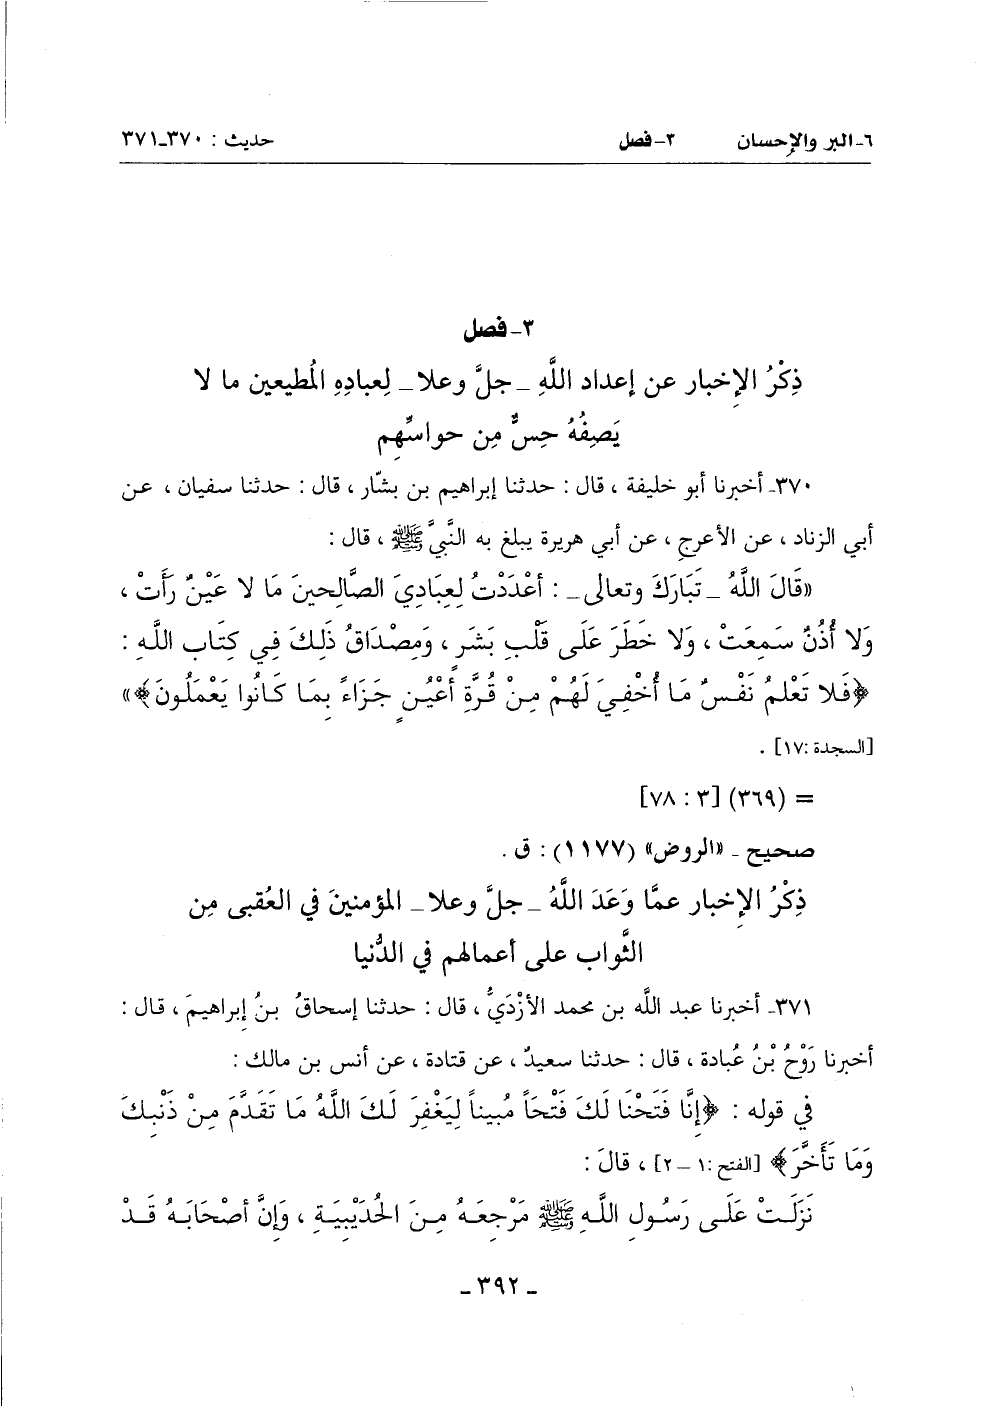 ٦- البر والإحسان ٣- فصل حديث : ٣٧٠-٣٧١
٣- فصل
ذِكْرُ الإِخبار عن إعداد اللَّهِ - جلَّ وعلا - لِعبادِهِ المُطيعين ما لا
يَصِفُهُ حِسٌّ مِن حواسِّهِم
٣٧٠- أخبرنا أبو خليفة ، قال : حدثنا إبراهيم بن بشّار ، قال : حدثنا سفيان ، عن
أبي الزناد ، عن الأعرج ، عن أبي هريرة يبلغ به النَّبيَّ ﷺ ، قال :
«قَالَ اللَّهُ - تَبَارَكَ وتعالى - : أعْدَدْتُ لِعِبَادِيَ الصَّالِحينَ مَا لا عَيْنٌ رَأَتْ ،
وَلا أُذُنٌ سَمِعَتْ ، وَلا خَطَرَ عَلَى قَلْبِ بَشَرٍ ، وَمِصْدَاقُ ذَلِكَ فِي كِتَابِ اللَّهِ :
﴿فَلا تَعْلَمُ نَفْسٌ مَا أُخْفِيَ لَهُمْ مِنْ قُرَّةِ أَعْيُنٍ جَزَاءً بِمَا كَانُوا يَعْمَلُونَ﴾»
[السجدة :١٧] .
= (٣٦٩) [٣ : ٧٨]
صحيح - «الروض» (١١٧٧) : ق .
ذِكْرُ الإِخبار عمَّا وَعَدَ اللَّهُ - جلَّ وعلا - المؤمنينَ في العُقبى مِن
الثَّواب على أعمالهم في الدُّنيا
٣٧١- أخبرنا عبد اللَّه بن محمد الأزْدَيُّ ، قال : حدثنا إسحاقُ بنُ إبراهيمَ ، قال :
أخبرنا رَوْحُ بْنُ عُبادة ، قال : حدثنا سعيدٌ ، عن قتادة ، عن أنس بن مالك :
في قوله : ﴿إِنَّا فَتَحْنَا لَكَ فَتْحَاً مُبيناً لِيَغْفِرَ لَكَ اللَّهُ مَا تَقَدَّمَ مِنْ ذَنْبِكَ
وَمَا تَأَخَّرَ﴾ [الفتح :١ -٢] ، قالَ :
نَزَلَتْ عَلَى رَسُولِ اللَّهِ ﷺ مَرْجِعَهُ مِنَ الحُدَيْبِيَةِ ، وَإِنَّ أصْحَابَهُ قَدْ
- ٣٩٢ -